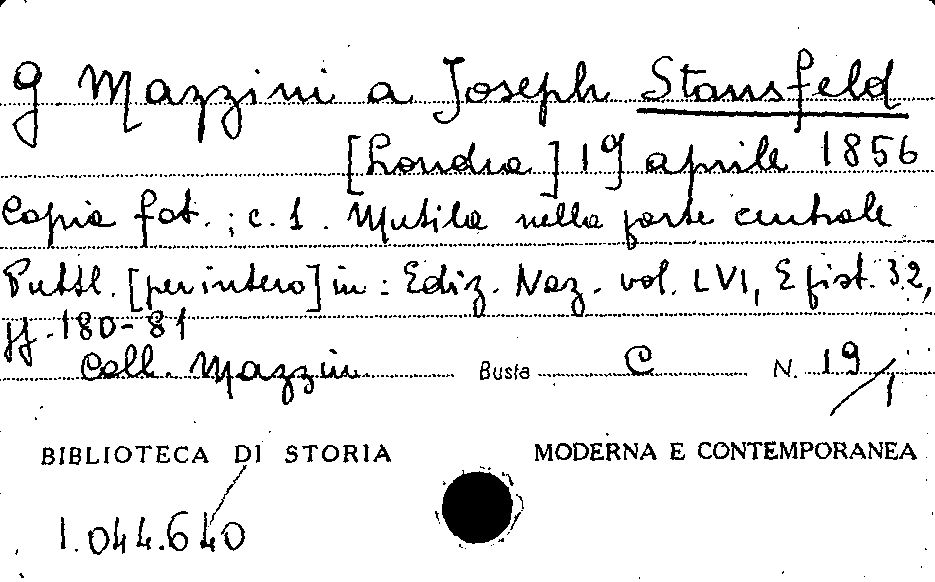 G. Mazzini a Joseph Stansfeld
[Londra] 19 aprile 1856
Copia fot.; c. 1. Mutila nella parte centrale
Pubbl. [per intero] in: Ediz. Naz. vol. LVI, Epist. 32,
pp. 180-81
Coll. Mazzini Busta C N. 19/1
BIBLIOTECA DI STORIA MODERNA E CONTEMPORANEA
1.044.640